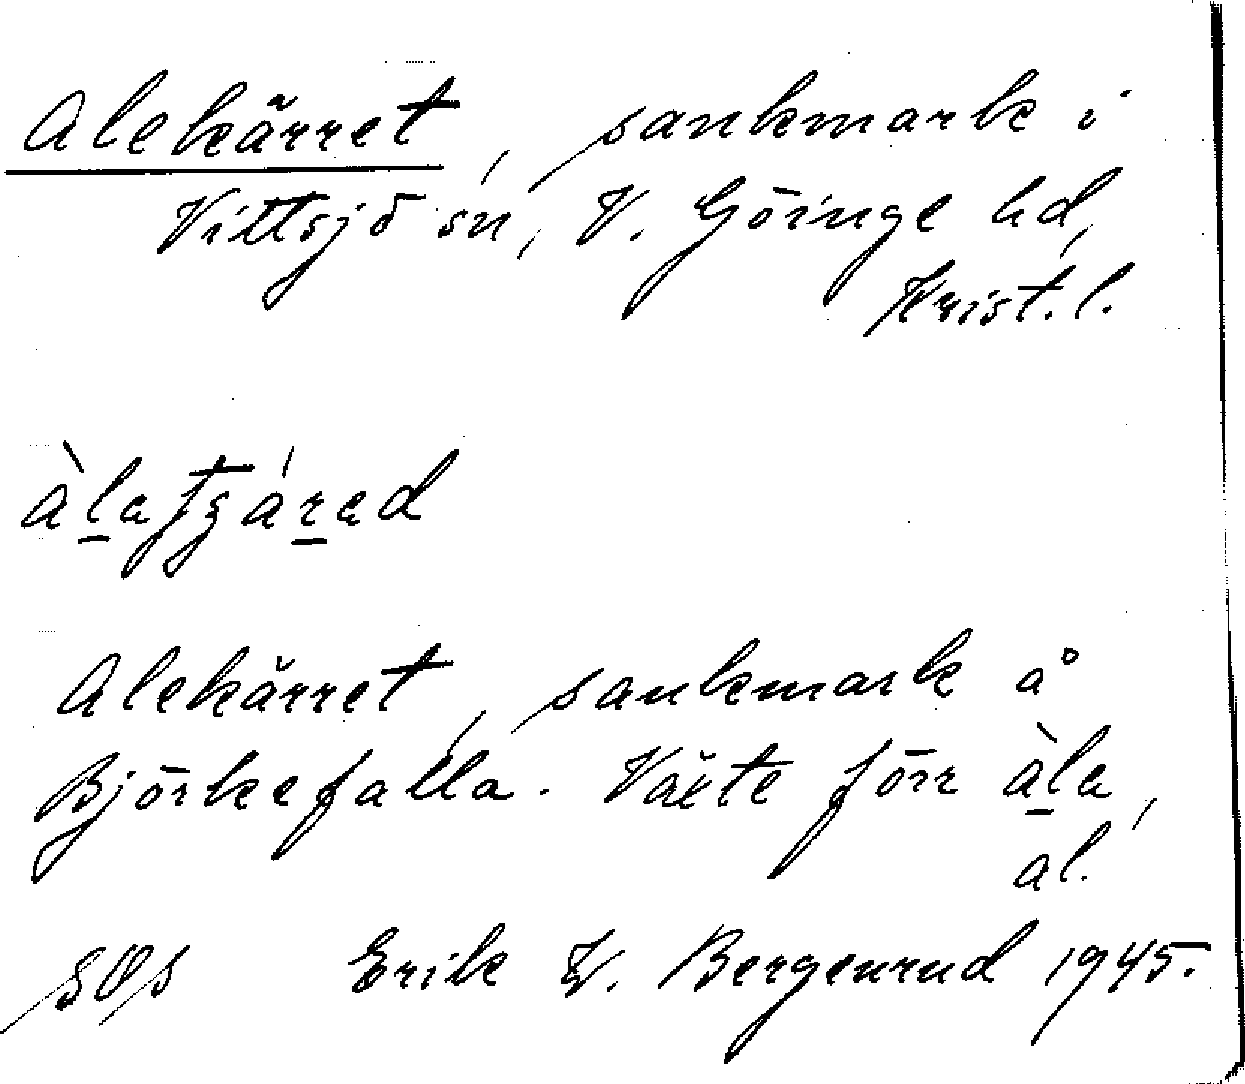 Alekärret, sankmark i
Vittsjö sn, V. Göinge hd,
Krist. l.
Alekärret, sankmark å
Björkefalla. Växte förr àla,
al.
SOS Erik W. Bergenrud 1945.